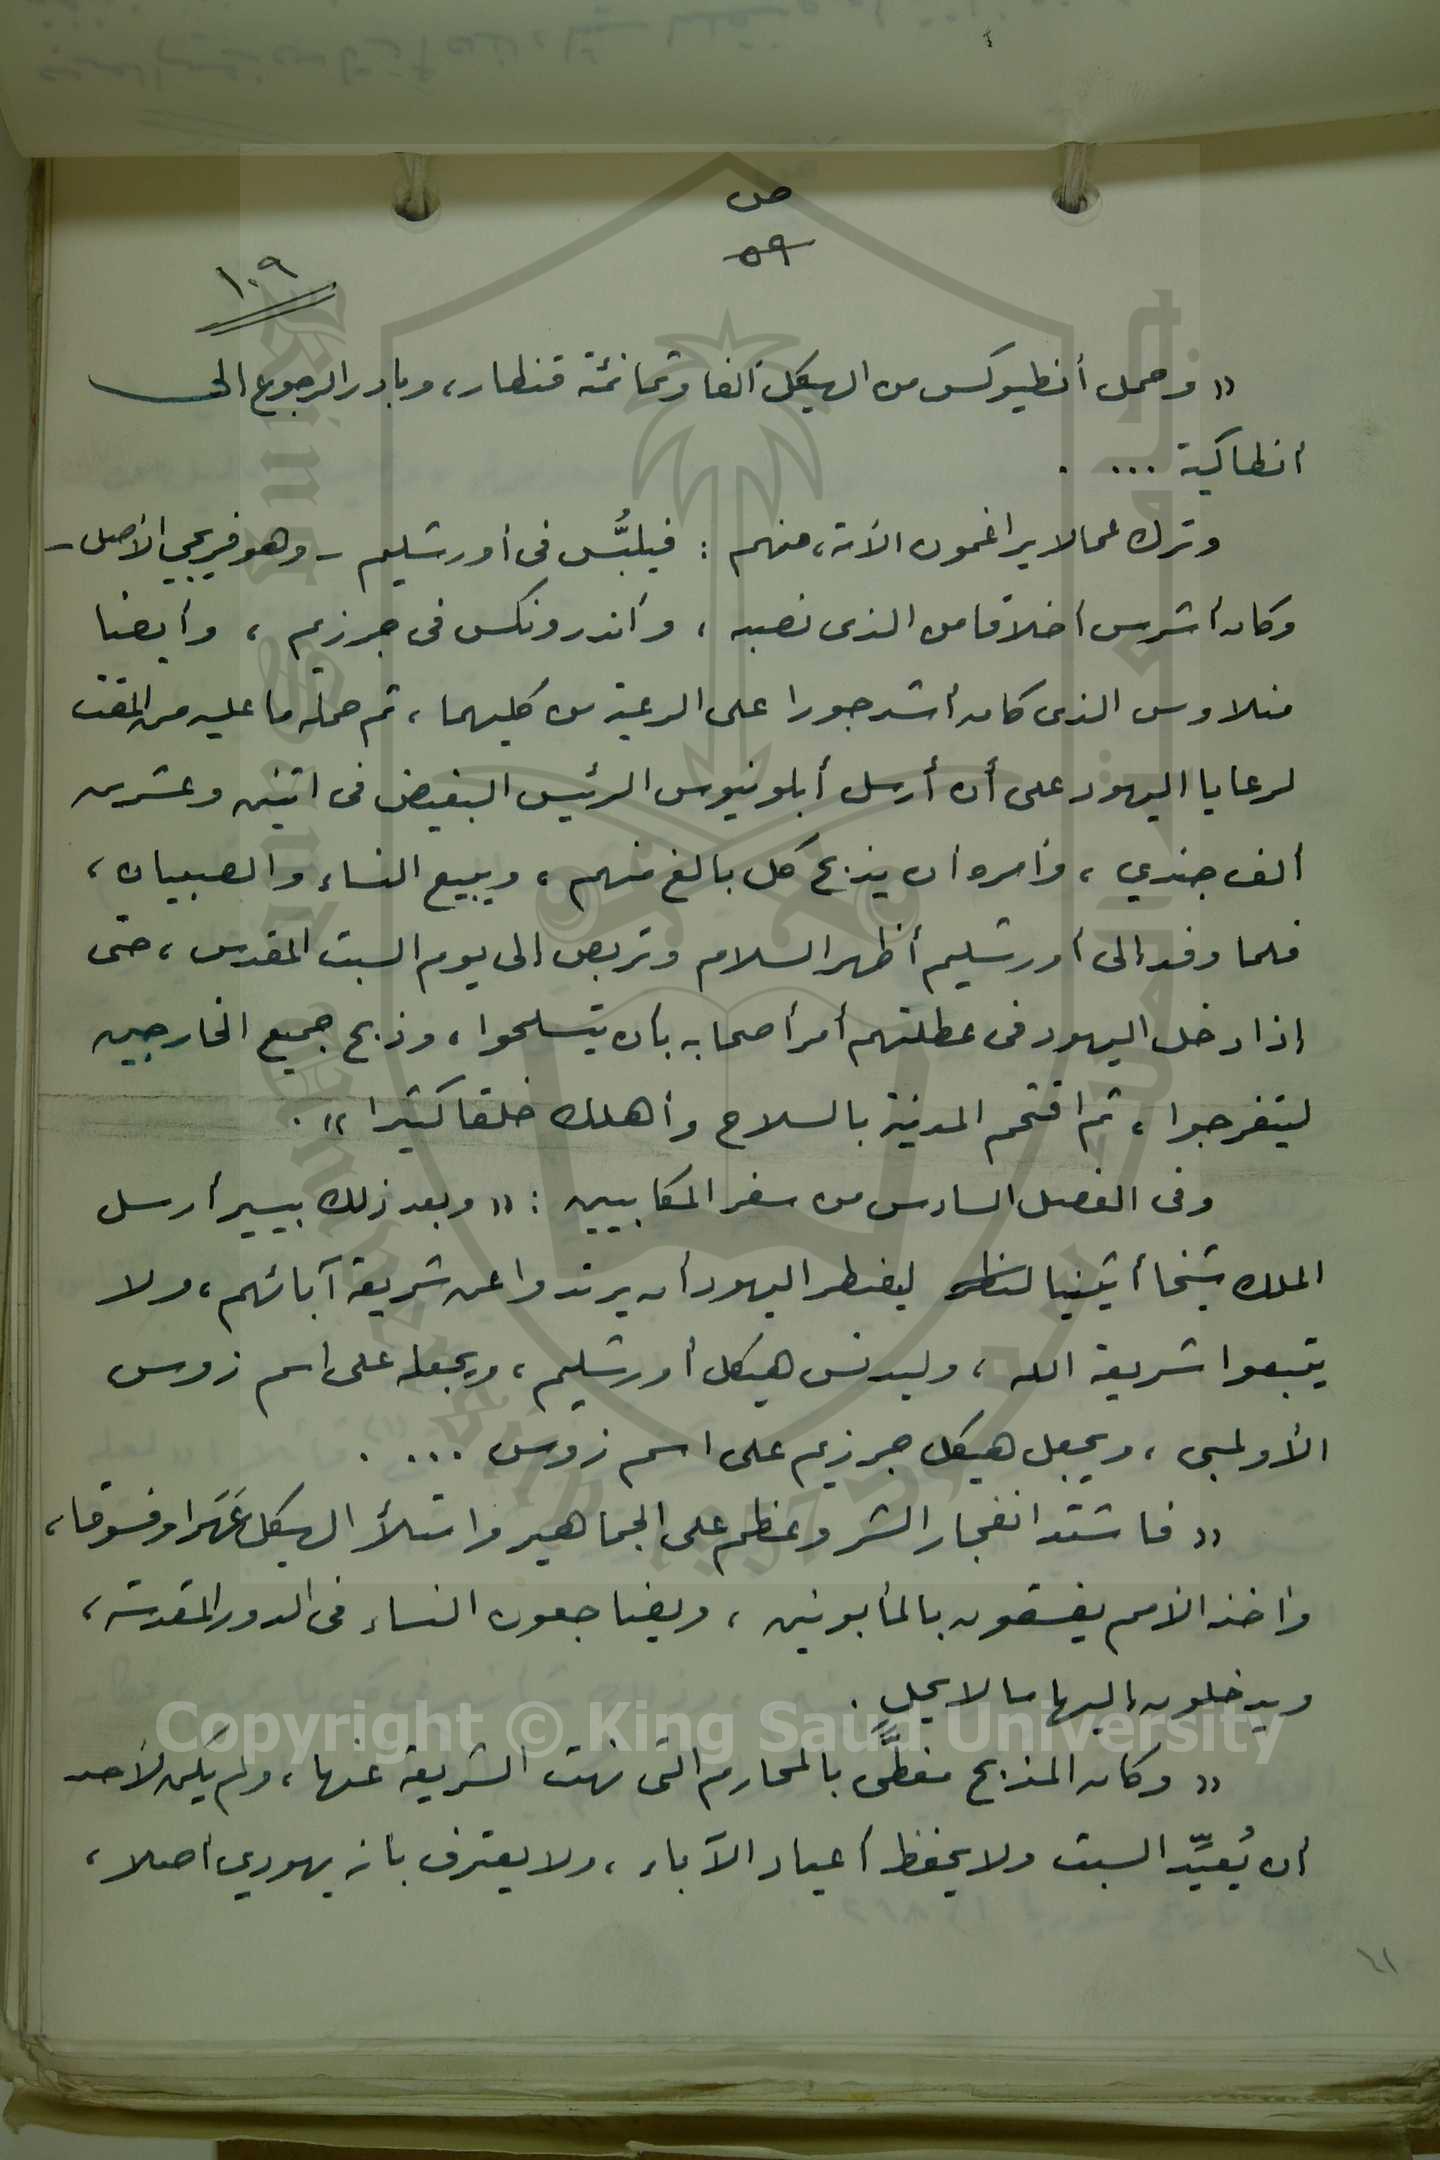 ص
٥٩
١٠٩
« وحمل أنطيوكس من الهيكل ألفا وثمانمئة قنطار، وبادر الرجوع الى
انطاكية ... .
وترك عمالا يراغمون الأمة، منهم : فيلبُّس فى أورشليم ــ وهو فريجي الأصل ــ
وكان أشرس أخلاقا من الذى نصبه ، وأندرونكس فى جرزيم ، وأيضا
منلاوس الذى كان أشد جورا على الرعية من كليهما ، ثم حمله ما عليه من المقت
لرعايا اليهود على أن أرسل أبلونيوس الرئيس البغيض فى اثنين وعشرين
ألف جندي ، وأمره أن يذبح كل بالغ منهم ، ويبيع النساء والصبيان ،
فلما وفد إلى أورشليم أظهر السلام وتربص إلى يوم السبت المقدس ، حتى
إذا دخل اليهود فى عطلتهم أمر أصحابه بأن يتسلحوا ، وذبح جميع الخارجين
ليتفرجوا ، ثم اقتحم المدينة بالسلاح وأهلك خلقا كثيرا » .
وفى الفصل السادس من سفر المكابيين : « وبعد ذلك بيسير أرسل
الملك شيخا أثينيا ليضطر اليهود أن يرتدوا عن شريعة آبائهم ، ولا
يتبعوا شريعة الله ، وليدنس هيكل أورشليم ، ويجعله على اسم زوس
الأولمبى ، ويجعل هيكل جرزيم على اسم زوس ... .
« فاشتد انفجار الشر وعظم على الجماهير وامتلأ الهيكل عَهَرا وفسوقا ،
وأخذ الأمم يفسقون بالمأبونين ، ويضاجعون النساء فى الدور المقدسة ،
ويدخلون إليها ما لا يحل .
« وكان المذبح مغطًّى بالمحارم التى نهت الشريعة عنها ، ولم يكن لأحد
أن يُعيِّد السبت ولا يحفظ أعياد الآباء ، ولا يعترف بأنه يهودي أصلا ،
٦١
Copyright © King Saud University
King Saud University
جامعة الملك سعود